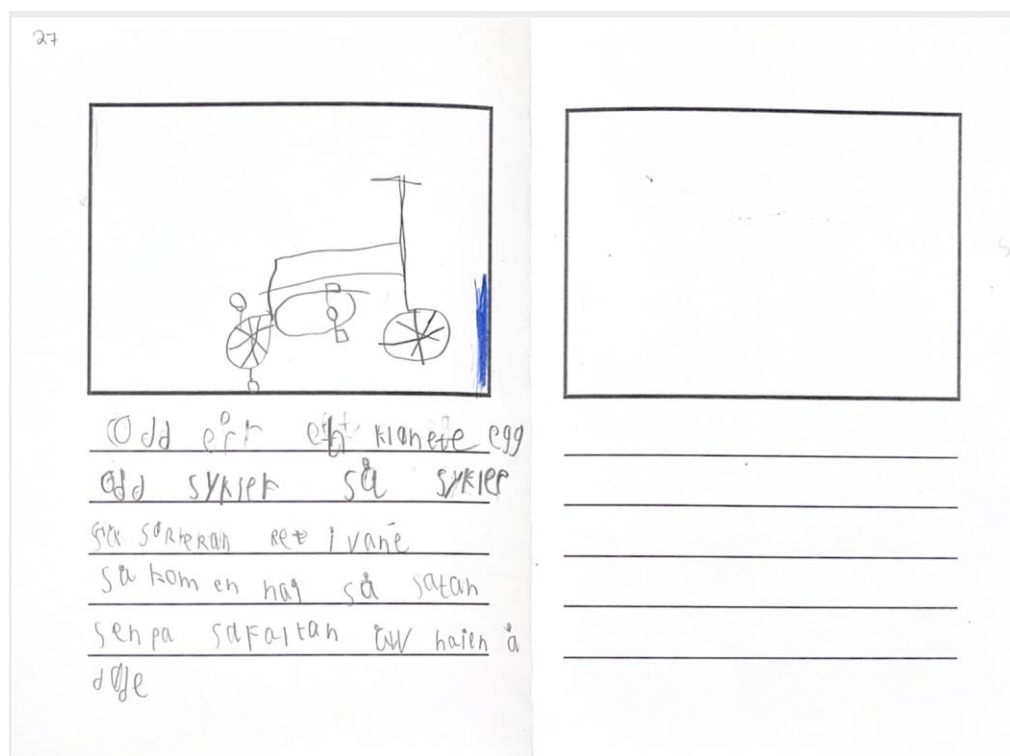 27
Odd err et klonete egg
odd sykler så sykler
såkkeran ret i vane
så kom en hai så satan
senpa safaltan åw haien å
døde